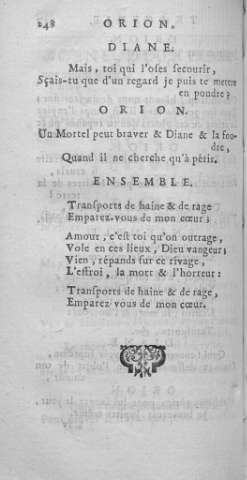 248 ORION.
DIANE.
Mais, toi qui l'oses secourir,
Sçais-tu que d'un regard je puis te mettre
en poudre?
ORION.
Un Mortel peut braver & Diane & la fou-
dre,
Quand il ne cherche qu'à périr.
ENSEMBLE.
Transports de haine & de rage
Emparez-vous de mon cœur;
Amour, c'est toi qu'on outrage,
Vole en ces lieux, Dieu vangeur;
Vien, répands sur ce rivage,
L'effroi, la mort & l'horreur:
Transports de haine & de rage,
Emparez-vous de mon cœur.